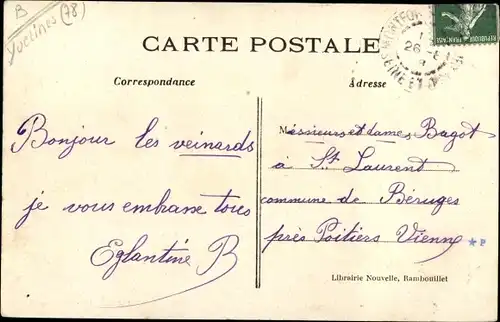 B
Yvelines (78)
CARTE POSTALE
MONTFORT
26 - 8
SEINE ET OISE
Correspondance
Adresse
Bonjour les veinards
je vous embrasse tous
Eglantine B
Messieurs et dames Bagot
à St Laurent
commune de Béruges
près Poitiers Vienne
P
Librairie Nouvelle, Rambouillet